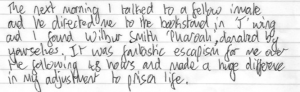 The next morning I talked to a fellow inmate
and he directed me to the bookstand in J wing
and I found Wilbur Smith Pharaoh, donated by
yourselves. It was fantastic escapism for me over
the following 48 hours and made a huge difference
in my adjustment to prison life.